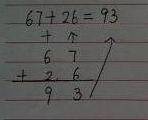 67 + 26 = 93
+ ↑
6 7
+ 2 6
9 3